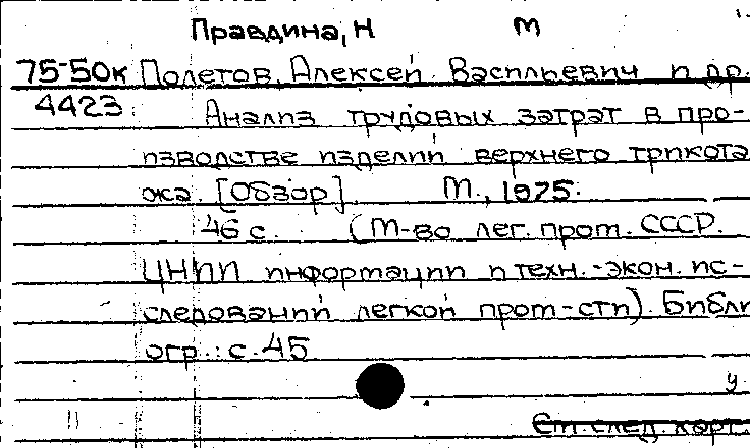 Правдина, Н М
75-50к Полетов, Алексей Васильевич и др.
4423. Анализ трудовых затрат в про-
изводстве изделий верхнего трикота
жа. [Обзор] М., 1975.
46 с. (М-во лег. пром. СССР.
ЦНИИ информации и техн.-экон. ис-
следований легкой пром-сти). Библи
огр.: с. 45
у
См. след. карт.